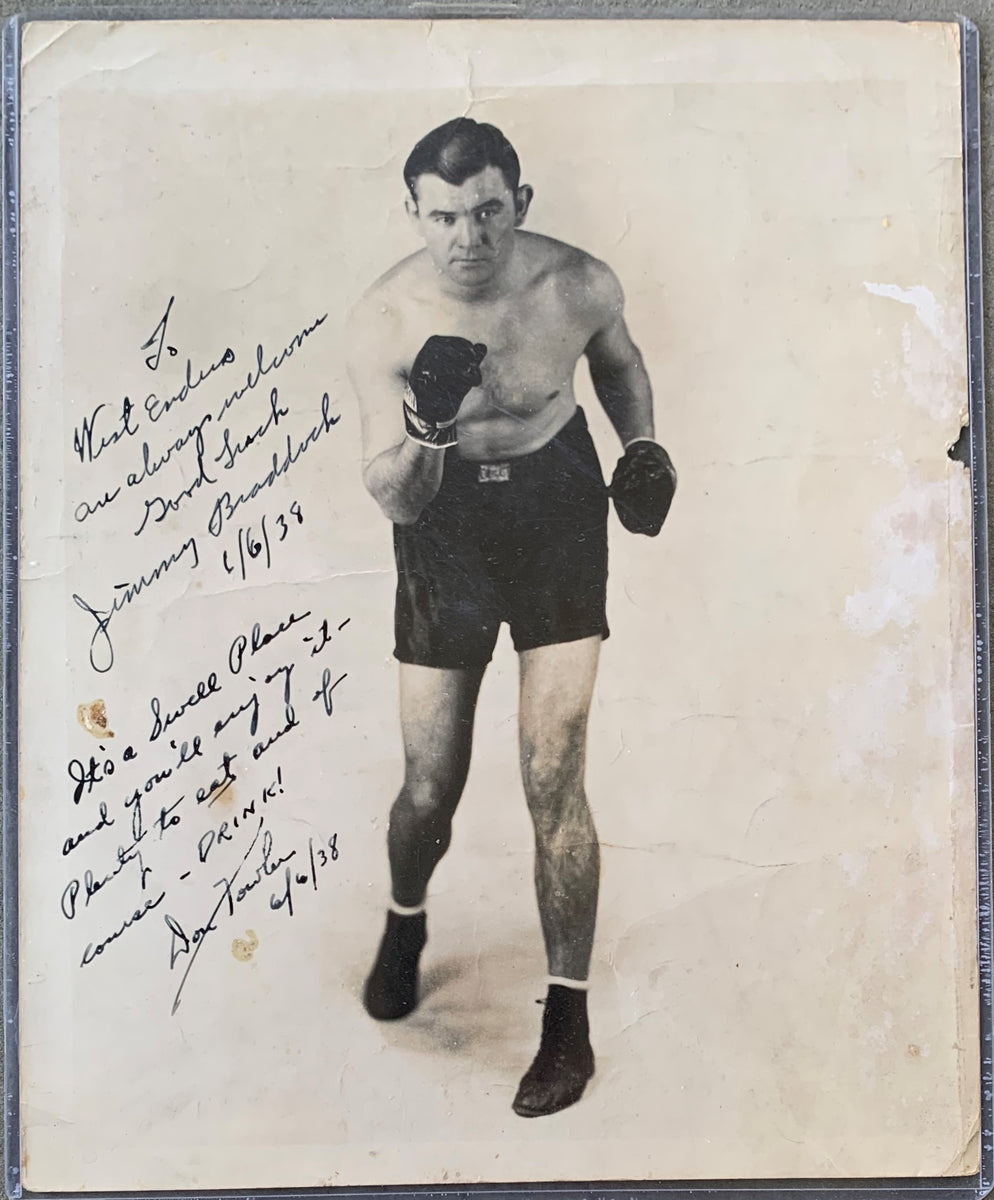 To
West Enders
are always welcome
Good Luck
Jimmy Braddock
6/6/38
It's a Swell Place
and you'll enjoy it-
Plenty to eat and of
course - DRINK!
Don Fowler
6/6/38